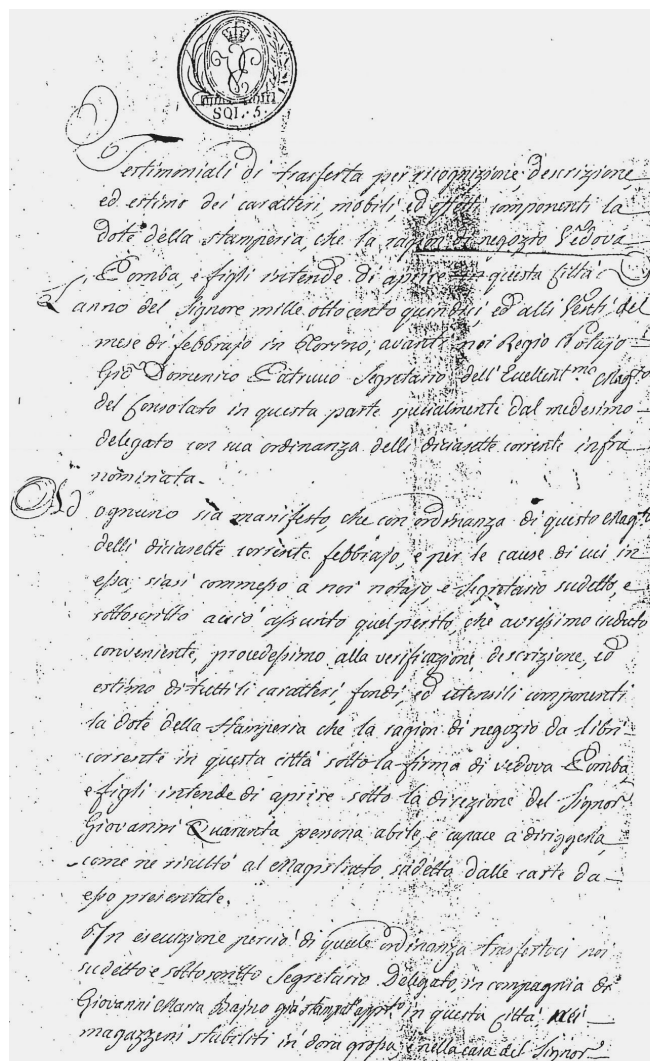 SOL. 5.
Testimoniali di trasferta per ricognizione, descrizione,
ed estimo dei caratteri, mobili, ed effetti componenti la
dote della stamperia, che la ragion di negozio Vedova
Pomba, e figli intende di aprire in questa Città
L'anno del Signore mille otto cento quindici, ed alli venti del
mese di febbrajo in Torino, avanti noi Regio Notajo
Gio. Domenico Segretario dell'Eccellent.mo Mag.to
del Consolato in questa parte specialmente dal medesimo
delegato con sua ordinanza delli diciasette corrente infra
nominata.
Ad ognuno sia manifesto, che con ordinanza di questo Mag.to
delli diciasette corrente febbrajo, e per le cause di cui in
essa, siasi commesso a noi notajo, e Segretario sudetto, e
sottoscritto acciò assunto quel perito, che avressimo creduto
conveniente, procedessimo alla verificazione, descrizione, ed
estimo di tutti li caratteri, fondi, ed utensili componenti
la dote della stamperia che la ragion di negozio da libri
corrente in questa città sotto la firma di vedova Pomba,
e figli intende di aprire sotto la direzione del Signor
Giovanni Quaranta persona abile, e capace a diriggerla,
come ne risultò al Magistrato sudetto dalle carte da
esso presentate.
In esecuzione perciò di quale ordinanza trasfertoci noi
sudetto e sottoscritto Segretario Delegato, in compagnia di
Giovanni Maria già stampat.e in questa Città nei
magazzeni stabiliti in dora grossa, e nella casa del Signor